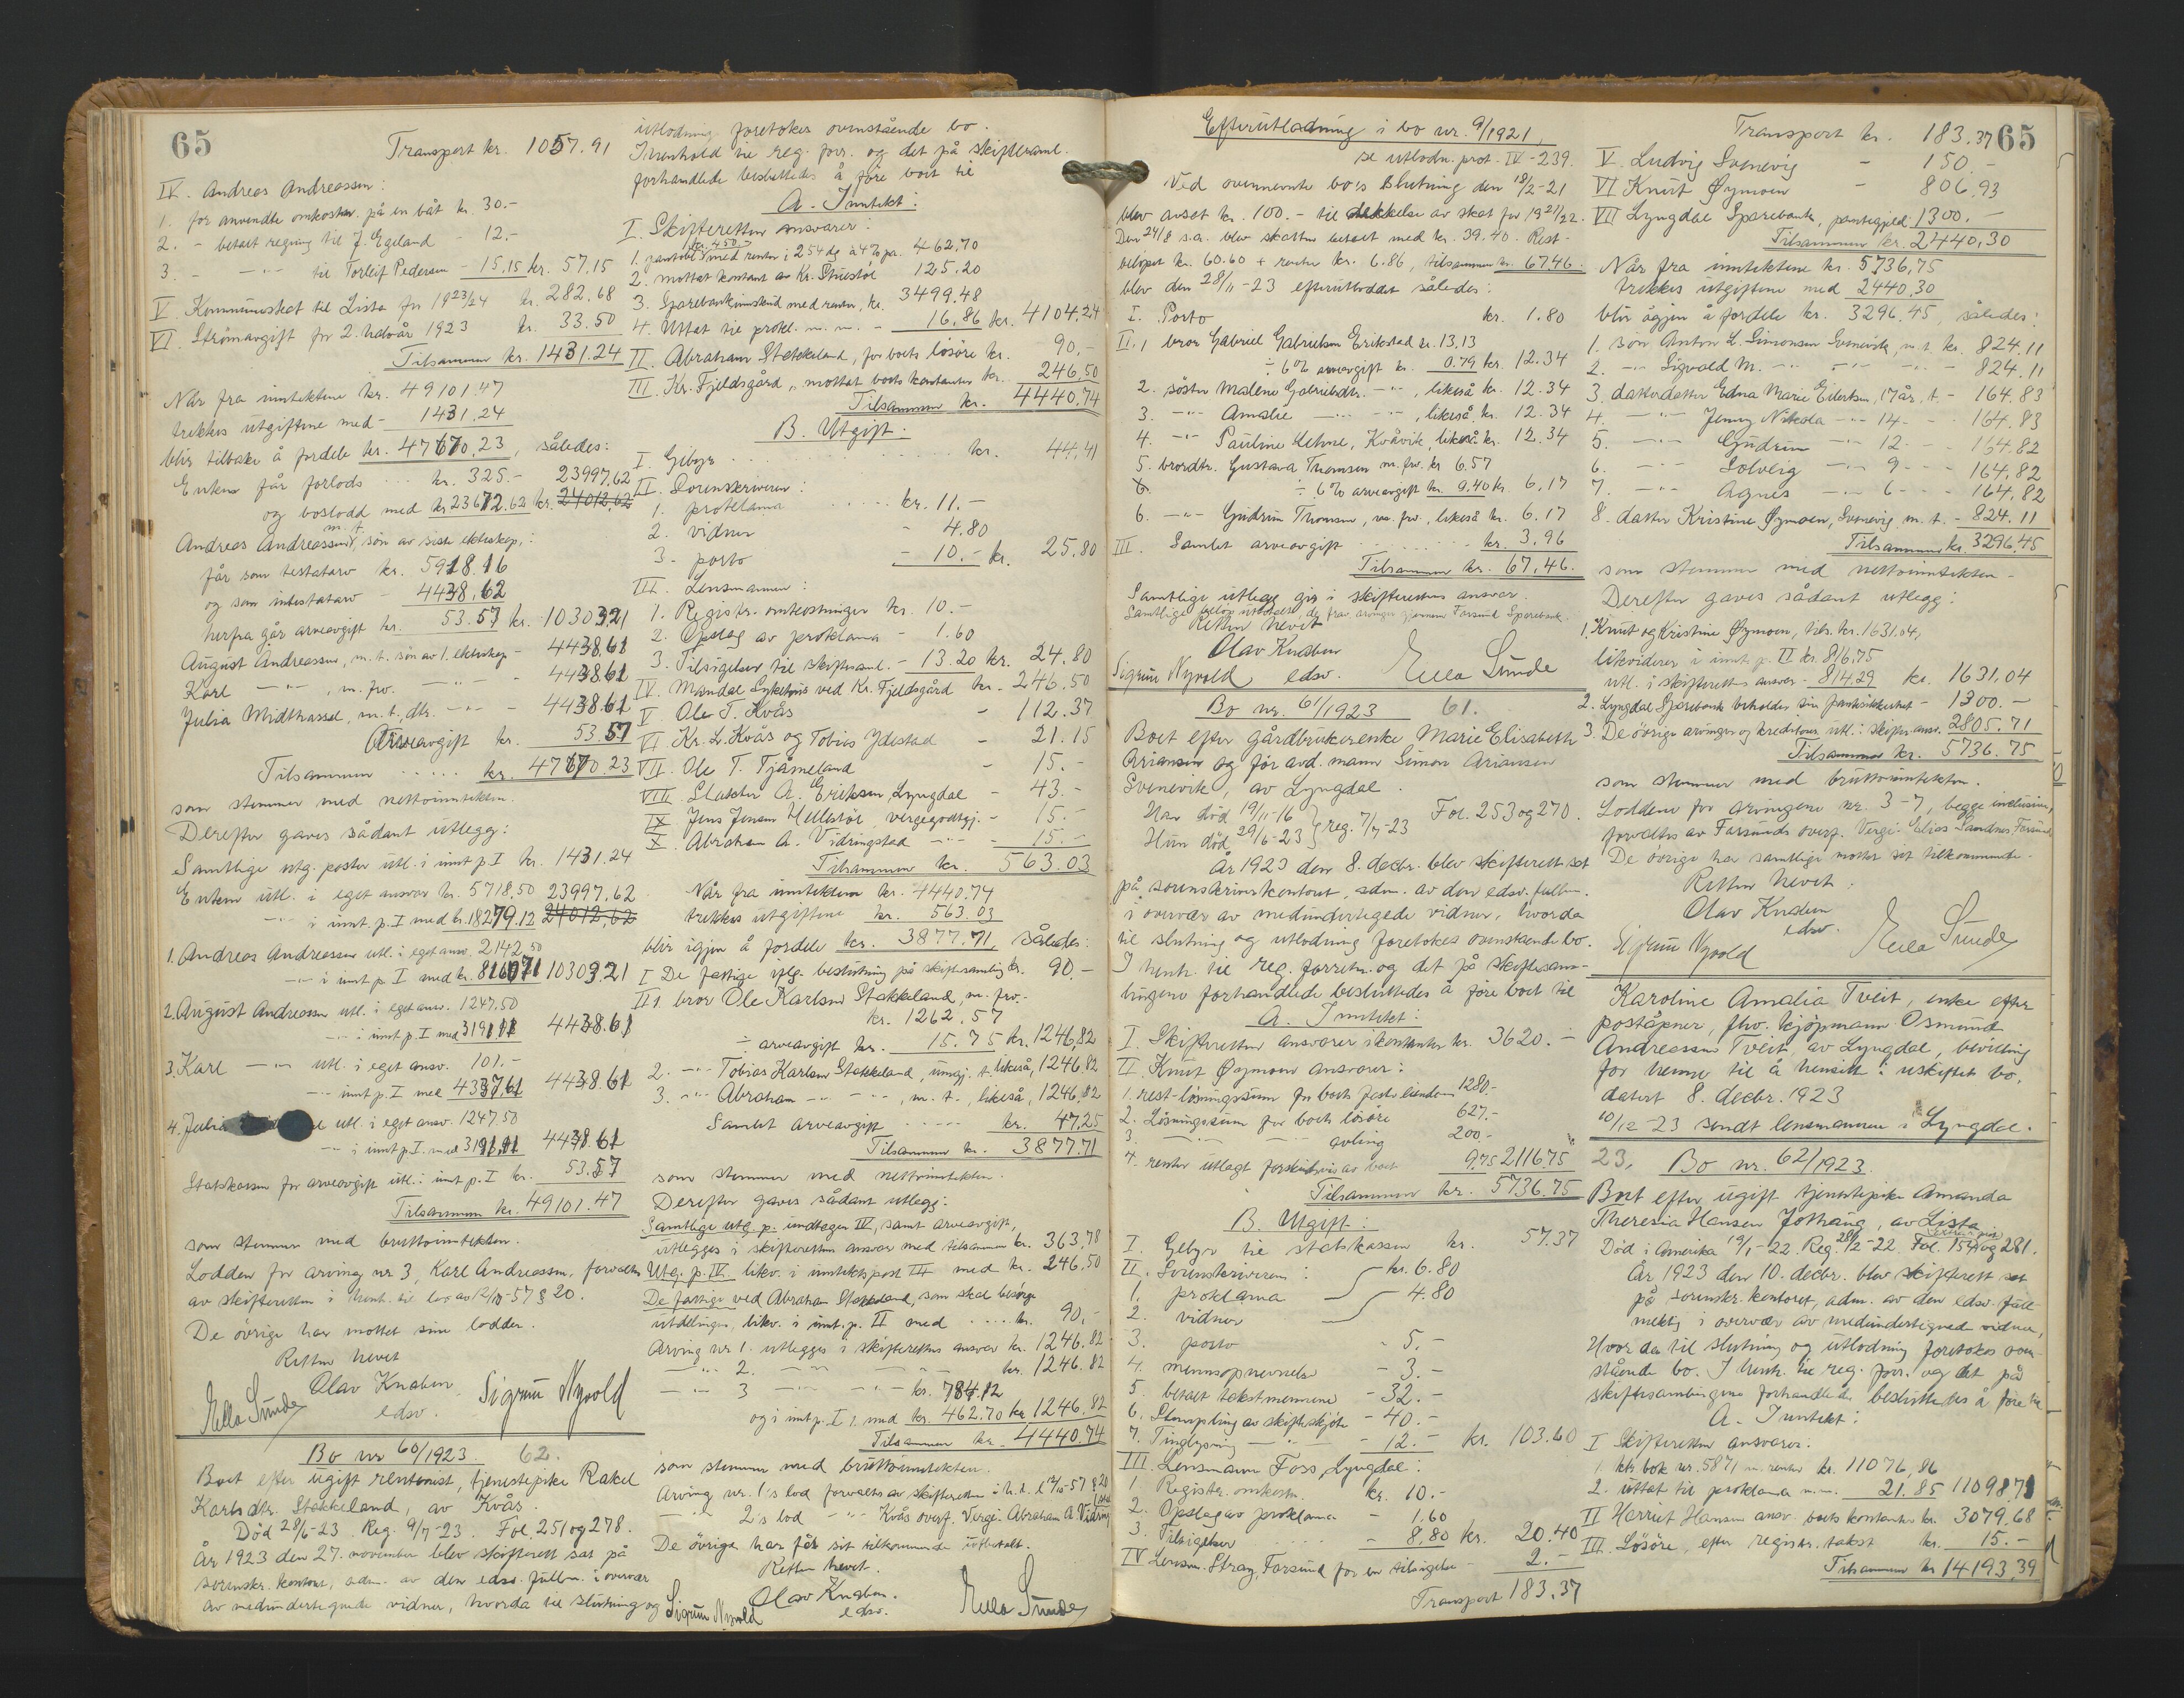 65
Transport kr. 1057.91
IV. Andreas Andreassen:
1. for anvendte omkostn. på en båt kr. 30.-
2. - betalt regning til J. Egeland - 12.-
3. - -"- til Torleif Pedersen - 15,15 kr. 57,15
V. Kommuneskat til Lista for 1923/24 kr. 282,68
VI. Strömavgift for 2. halvår 1923 kr. 33.50
Tilsammen kr. 1431.24
Når fra inntektene kr. 49101.47
trekkes utgiftene med - 1431.24
blir tilbake å fordele kr. 47670,23, således:
Enken får forlods ... kr. 325.- 23997,62
og boslodd med kr 23672.62 kr. 24012,62
Andreas Andreassen m. t., sön av siste ekteskap,:
får som testatarv kr. 5918.16
og som intestatarv - 4438,62
herfra går arveavgift kr. 53.57 kr. 10303,21
August Andreassen, m. t. sön av 1. ekteskap - 4438.61
Karl -"- , m. frv. -"- - 4438.61
Julia Midthassel, m. t., dtr. -"- - 4438.61
Arveavgift kr. 53.57
Tilsammen ..... kr. 47670.23
som stemmer med nettoinntekten.
Derefter gaves sådant utlegg:
Samtlige utg. poster utl. i innt. p. I kr. 1431.24
Enken utl. i eget ansvar kr. 5718.50 23997,62
-"- i innt. p. I med kr. 18279.12 24012,62
1. Andreas Andreassen utl. i eget ansv. 2142.50
-"- i innt p. I med kr. 8160,71 10303.21
2. August Andreassen utl. i eget ansv. 1247.50
-"- i innt p. I med 3191.11 4438.61
3. Karl -"- utl. i eget ansv. 101.-
-"- innt p. I med 4337,61 4438.61
4. Julia utl. i eget ansv. 1247.50
-"- i innt p. I. med 3191,11 4438.61
Statskassen for arveavgift utl. i innt p. I kr. 53.57
Tilsammen kr. 49101.47
som stemmer med bruttoinntekten.
Lodden for arving nr 3, Karl Andreassen, forvaltes
av skifteretten i henh. til lov av 12/10-57 § 20.
De övrige har mottet sine lodder.
Retten hevet
Olav Knaben
edsv.
Ella Sunde Sigrun Nyvold
Bo nr 60/1923 62.
Boet efter ugift rentenist, tjenestepike Rakel
Karlsdtr. Stakkeland, av Kvås.
Död 28/6-23. Reg. 9/7-23. Fol. 251 og 278.
År 1923 den 27. november blev skifterett sat på
sorenskr. kontoret, adm. av den edsv. fullm. i overvær
av medundertegnede vidner, hvorda til slutning og
utlodning foretokes ovenstående bo.
I henhold til reg. forr. og det på skiftesaml.
forhandlede besluttedes å före boet til
A. Inntekt:
I. Skifteretten ansvarer:
1. pantobl. kr. 450.- med renter i 254 dg à 4% pa. 462,70
2. mottat kontant av Kr. Stuestöl 125,20
3. Sparebankinnskud med renter, kr. 3499,48
4. Uttat til prokl. m. m. - 16,86 kr. 4104,24
II. Abraham Stakkeland, for boets lösöre kr. 90,-
III. Kr. Fjeldsgård, mottat boets kontanter kr. 246,50
Tilsammen kr. 4440,74
B. Utgift:
I. Gebyr ..... kr. 44,41
II. Sorenskriveren:
1. proklama .... kr. 11.-
2. vidner - 4.80
3. porto - 10.- kr. 25,80
III. Lensmannen:
1. Registr. omkostninger kr. 10.-
2. Opslag av proklama - 1.60
3. Tilsigelser til skiftesaml. - 13.20 kr. 24.80
IV. Mandal Sykehus ved Kr. Fjeldsgård kr. 246.50
V. Ole T. Kvås - 112.37
VI Kr. L. Kvås og Tobias Ydestad - 21.15
VII. Ole T. Tjåmeland - 15.-
VIII. Slakter A. Eriksen, Lyngdal - 43.-
IX Jens Jensen Hellestöl, vergegodtgj. - 15.-
X. Abraham A. Vidringstad -"- - 15.-
Tilsammen kr. 563.03
Når fra inntektene kr. 4440.74
trekkes utgiftene kr. 563.03
blir igjen å fordele kr. 3877.71, således:
I De fattige iflg. beslutning på skiftesamling kr. 90.-
II 1. bror Ole Karlsen Stakkeland, m. frv.
kr. 1262.57
÷ arveavgift kr. 15.75 kr. 1246,82
2. -"- Tobias Karlsen Stakkeland, umynd. t. likeså, 1246,82
3. -"- Abraham -"- -"-, m. t., likeså, 1246,82
Samlet arveavgift ..... kr. 47,25
Tilsammen kr. 3877.71
som stemmer med nettoinntekten.
Derefter gaves sådant utlegg:
Samtlige utg. p. undtagen IV, samt arveavgift,
utlegges i skifterettens ansvar med tilsammen kr. 363,78
Utg. p. IV. likv. i inntektspost III med kr. 246,50
De fattige ved Abraham Stakkeland, som skal besörge
utdelingen, likv. i innt. p. II med .... kr. 90,-
Arving nr 1. utlegges i skifterettens ansvar kr. 1246.82
-"- 2. -"- -"- kr. 1246.82
-"- 3 -"- -"- kr. 784.12
og i innt p. I 1. med kr. 462.70 kr. 1246.82
Tilsammen kr. 4440.74
som stemmer med bruttoinntekten.
Arving nr. 1's lod forvaltes av skifteretten i h. t. l 12/10-57 § 20
-"- 2's lod -"- Kvås overf. Verge: Abraham A. Vidring
De övrige har fåt sit tilkommende utbetalt.
Retten hevet.
Olav Knaben.
edsv.
Sigrun Nyvold Ella Sunde
Efterutlodning i bo nr. 9/1921,
se utlodn. prot. IV - 239.
Ved ovennevnte bo's slutning den 18/2-21
blev avsat kr. 100.- til dekkelse av skat for 1921/22.
Den 24/8 s.a. blev skatten betalt med kr. 39.40. Rest-
belöpet kr. 60.60 + renter kr. 6.86, tilsammen kr. 67.46.
blev den 28/11-23 efterutloddet således:
I. Porto kr. 1.80
II. 1 bror Gabriel Gabrielsen Erikstad kr. 13,13
÷ 6% arveavgift kr. 0.79 kr. 12.34
2. söster Malene Gabrielsdtr. -"-, likeså kr. 12.34
3. -"- Amalie -"- -"-, likeså kr. 12.34
4. -"- Pauline Kehne, Kvåvik, likeså kr. 12.34
5. brordtr. Gustava Thomsen m. frv. kr 6.57
÷ 6% arveavgift kr. 0.40 kr. 6.17
6. -"- Gudrun Thomsen, m. frv., likeså kr. 6.17
III. Samlet arveavgift ..... kr. 3.96
Tilsammen kr. 67.46.
Samtlige utlegg gis i skifterettens ansvar.
Samtlige belöp utbetales de frav. arvinger gjennem Farsund Sparebank.
Retten hevet
Olav Knaben
edsv.
Sigrun Nyvold Ella Sunde
Bo nr. 61/1923 61.
Boet efter gårdbrukerenke Marie Elisabeth
Ariansen og för avd. mann Simon Ariansen
Svenevik, av Lyngdal.
Han död 19/11-16
Hun död 29/6-23 } reg. 7/7-23 Fol. 253 og 270.
År 1923 den 8. decbr. blev skifterett sat
på sorenskriverkontoret, adm. av den edsv. fullm.
i overvær av medundertegnede vidner, hvorda
til slutning og utlodning foretokes ovenstående bo.
I henh. til reg. forretn. og det på skiftesam-
lingene forhandlede besluttedes å före boet til
A. Inntekt:
I. Skifteretten ansvarer i kontanter kr. 3620.-
II. Knut Øymoen ansvarer:
1. rest-lösningssum for boets faste eiendom 1280.-
2. Lösningssum for boets lösöre 627.-
3. -"- -"- avling 200.-
4. renter utlagt forskudsvis av boet 9.75 2116.75
Tilsammen kr. 5736.75
B. Utgift:
I. Gebyr til statskassen kr. 57.37
II. Sorenskriveren:
1. proklama kr. 6.80
2. vidner 4.80
3. porto - 5.-
4. mennsopnevnelse - 3.-
5. betalt takstmennene - 32.-
6. Stempling av skifteskjöte - 40.-
7. Tinglysning -"- - 12.- kr. 103.60
III. Lensmann Foss, Lyngdal:
1 Registr. omkostn. kr. 10.-
2. Opslag av proklama - 1.60
3. Tilsigelser - 8,80 kr. 20.40
IV Lensm. Stray, Farsund for en tilsigelse - 2.-
Transport 183,37
65
Transport kr. 183.37
V. Ludvig Svenevig - 150.-
VI Knut Øymoen - 806,93
VII Lyngdal Sparebank, pantegjeld 1300.-
Tilsammen kr. 2440,30
Når fra inntektene kr. 5736,75
trekkes utgiftene med 2440.30
blir igjen å fordele kr. 3296.45, således:
1. sön Anton L. Simonsen Svenevik, m. t. kr. 824.11
2. -"- Sigvald M. -"- -"- - 824.11
3. datterdatter Edna Marie Eilertsen, 17 år, t. - 164,83
4. -"- Jenny Nikola -"- 14 - 164.83
5. -"- Gudrun -"- 12 - 164.82
6. -"- Solveig -"- 9 - 164,82
7. -"- Agnes -"- 6 - 164,82
8. datter Kristine Øymoen, Svenevig m. t. - 824.11
Tilsammen kr. 3296.45
som stemmer med nettoinntekten -
Derefter gaves sådant utlegg:
1. Knut og Kristine Øymoen, tils. kr. 1631.04,
likviderer i innt. p. II kr. 816.75
utl. i skifterettens ansvar - 814.29 kr. 1631.04
2. Lyngdal Sparebank beholder sin pantsikkerhet - 1300.-
3. De övrige arvinger og kreditorer utl. i skifter. ansv. 2805.71
Tilsammen kr. 5736.75
som stemmer med bruttoinntekten.
Loddene for arvingene nr. 3-7, begge inclusive,
forvaltes av Farsunds overf. Verge: Elias Sandnes, Farsund
De övrige har samtlige mottat sit tilkommende.
Retten hevet:
Olav Knaben
edsv.
Sigrun Nyvold Ella Sunde
Karoline Amalia Tveit, enke efter
poståpner, fhv. kjöpmann Osmund
Andreassen Tveit, av Lyngdal, bevilling
for henne til å hensitte i uskiftet bo,
datert 8. decbr. 1923
10/12-23 sendt lensmannen i Lyngdal.
23. Bo nr. 62/1923.
Boet efter ugift tjenestepike Amanda
Theresia Hansen Jöthaug, av Lista
Död i Amerika 19/1-22. Reg. 28/2-22. Fol. 154 og 281.
År 1923 den 10. decbr. blev skifterett sat
på sorenskr. kontoret, adm. av den edsv. full-
mektig i overvær av medundertegnede vidner,
Hvor da til slutning og utlodning foretokes oven-
stående bo. I henh. til reg. forr. og det på
skiftesamlingene forhandlede besluttedes å före til
A. Inntekt:
I Skifteretten ansvarer:
1. ktr. bok nr. 5871 m. renter kr. 11076,86
2. uttat til proklama m.m. 21.85 11098.71
II Harriet Hansen ansv. boets kontanter kr. 3079,68
III. Lösöre, efter registr. takst kr. 15.-
Tilsammen kr 14193,39